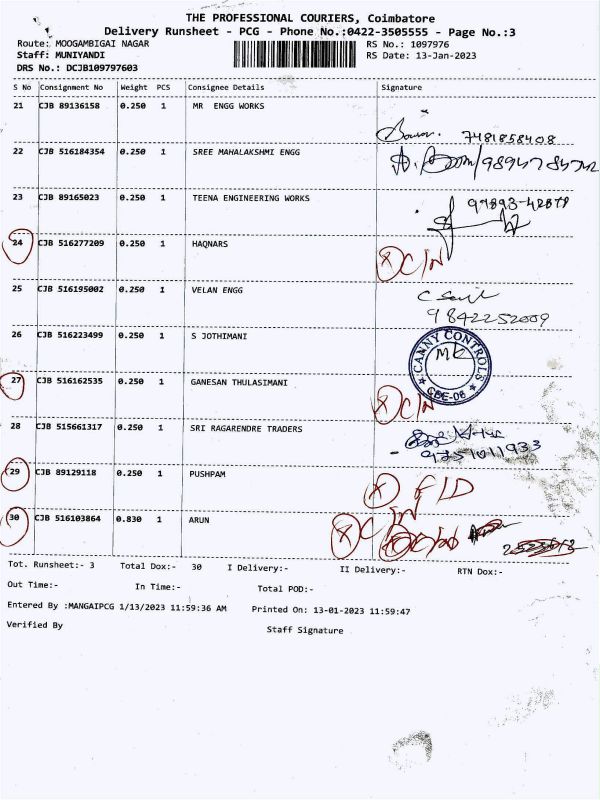 THE PROFESSIONAL COURIERS, Coimbatore
Delivery Runsheet - PCG - Phone No.:0422-3505555 - Page No.:3
Route: MOOGAMBIGAI NAGAR RS No.: 1097976
Staff: MUNIYANDI RS Date: 13-Jan-2023
DRS No.: DCJB109797603
S No Consignment No Weight PCS Consignee Details Signature
21 CJB 89136158 0.250 1 MR ENGG WORKS
7481858408
22 CJB 516184354 0.250 1 SREE MAHALAKSHMI ENGG
23 CJB 89165023 0.250 1 TEENA ENGINEERING WORKS
24 CJB 516277209 0.250 1 HAQNARS
C/N
25 CJB 516195002 0.250 1 VELAN ENGG
9842252009
26 CJB 516223499 0.250 1 S JOTHIMANI
CANNY CONTROLS
CBE-06
27 CJB 516162535 0.250 1 GANESAN THULASIMANI
C/N
28 CJB 515661317 0.250 1 SRI RAGARENDRE TRADERS
29 CJB 89129118 0.250 1 PUSHPAM
30 CJB 516103864 0.830 1 ARUN
Tot. Runsheet:- 3 Total Dox:- 30 I Delivery:- II Delivery:- RTN Dox:-
Out Time:- In Time:- Total POD:-
Entered By :MANGAIPCG 1/13/2023 11:59:36 AM Printed On: 13-01-2023 11:59:47
Verified By Staff Signature